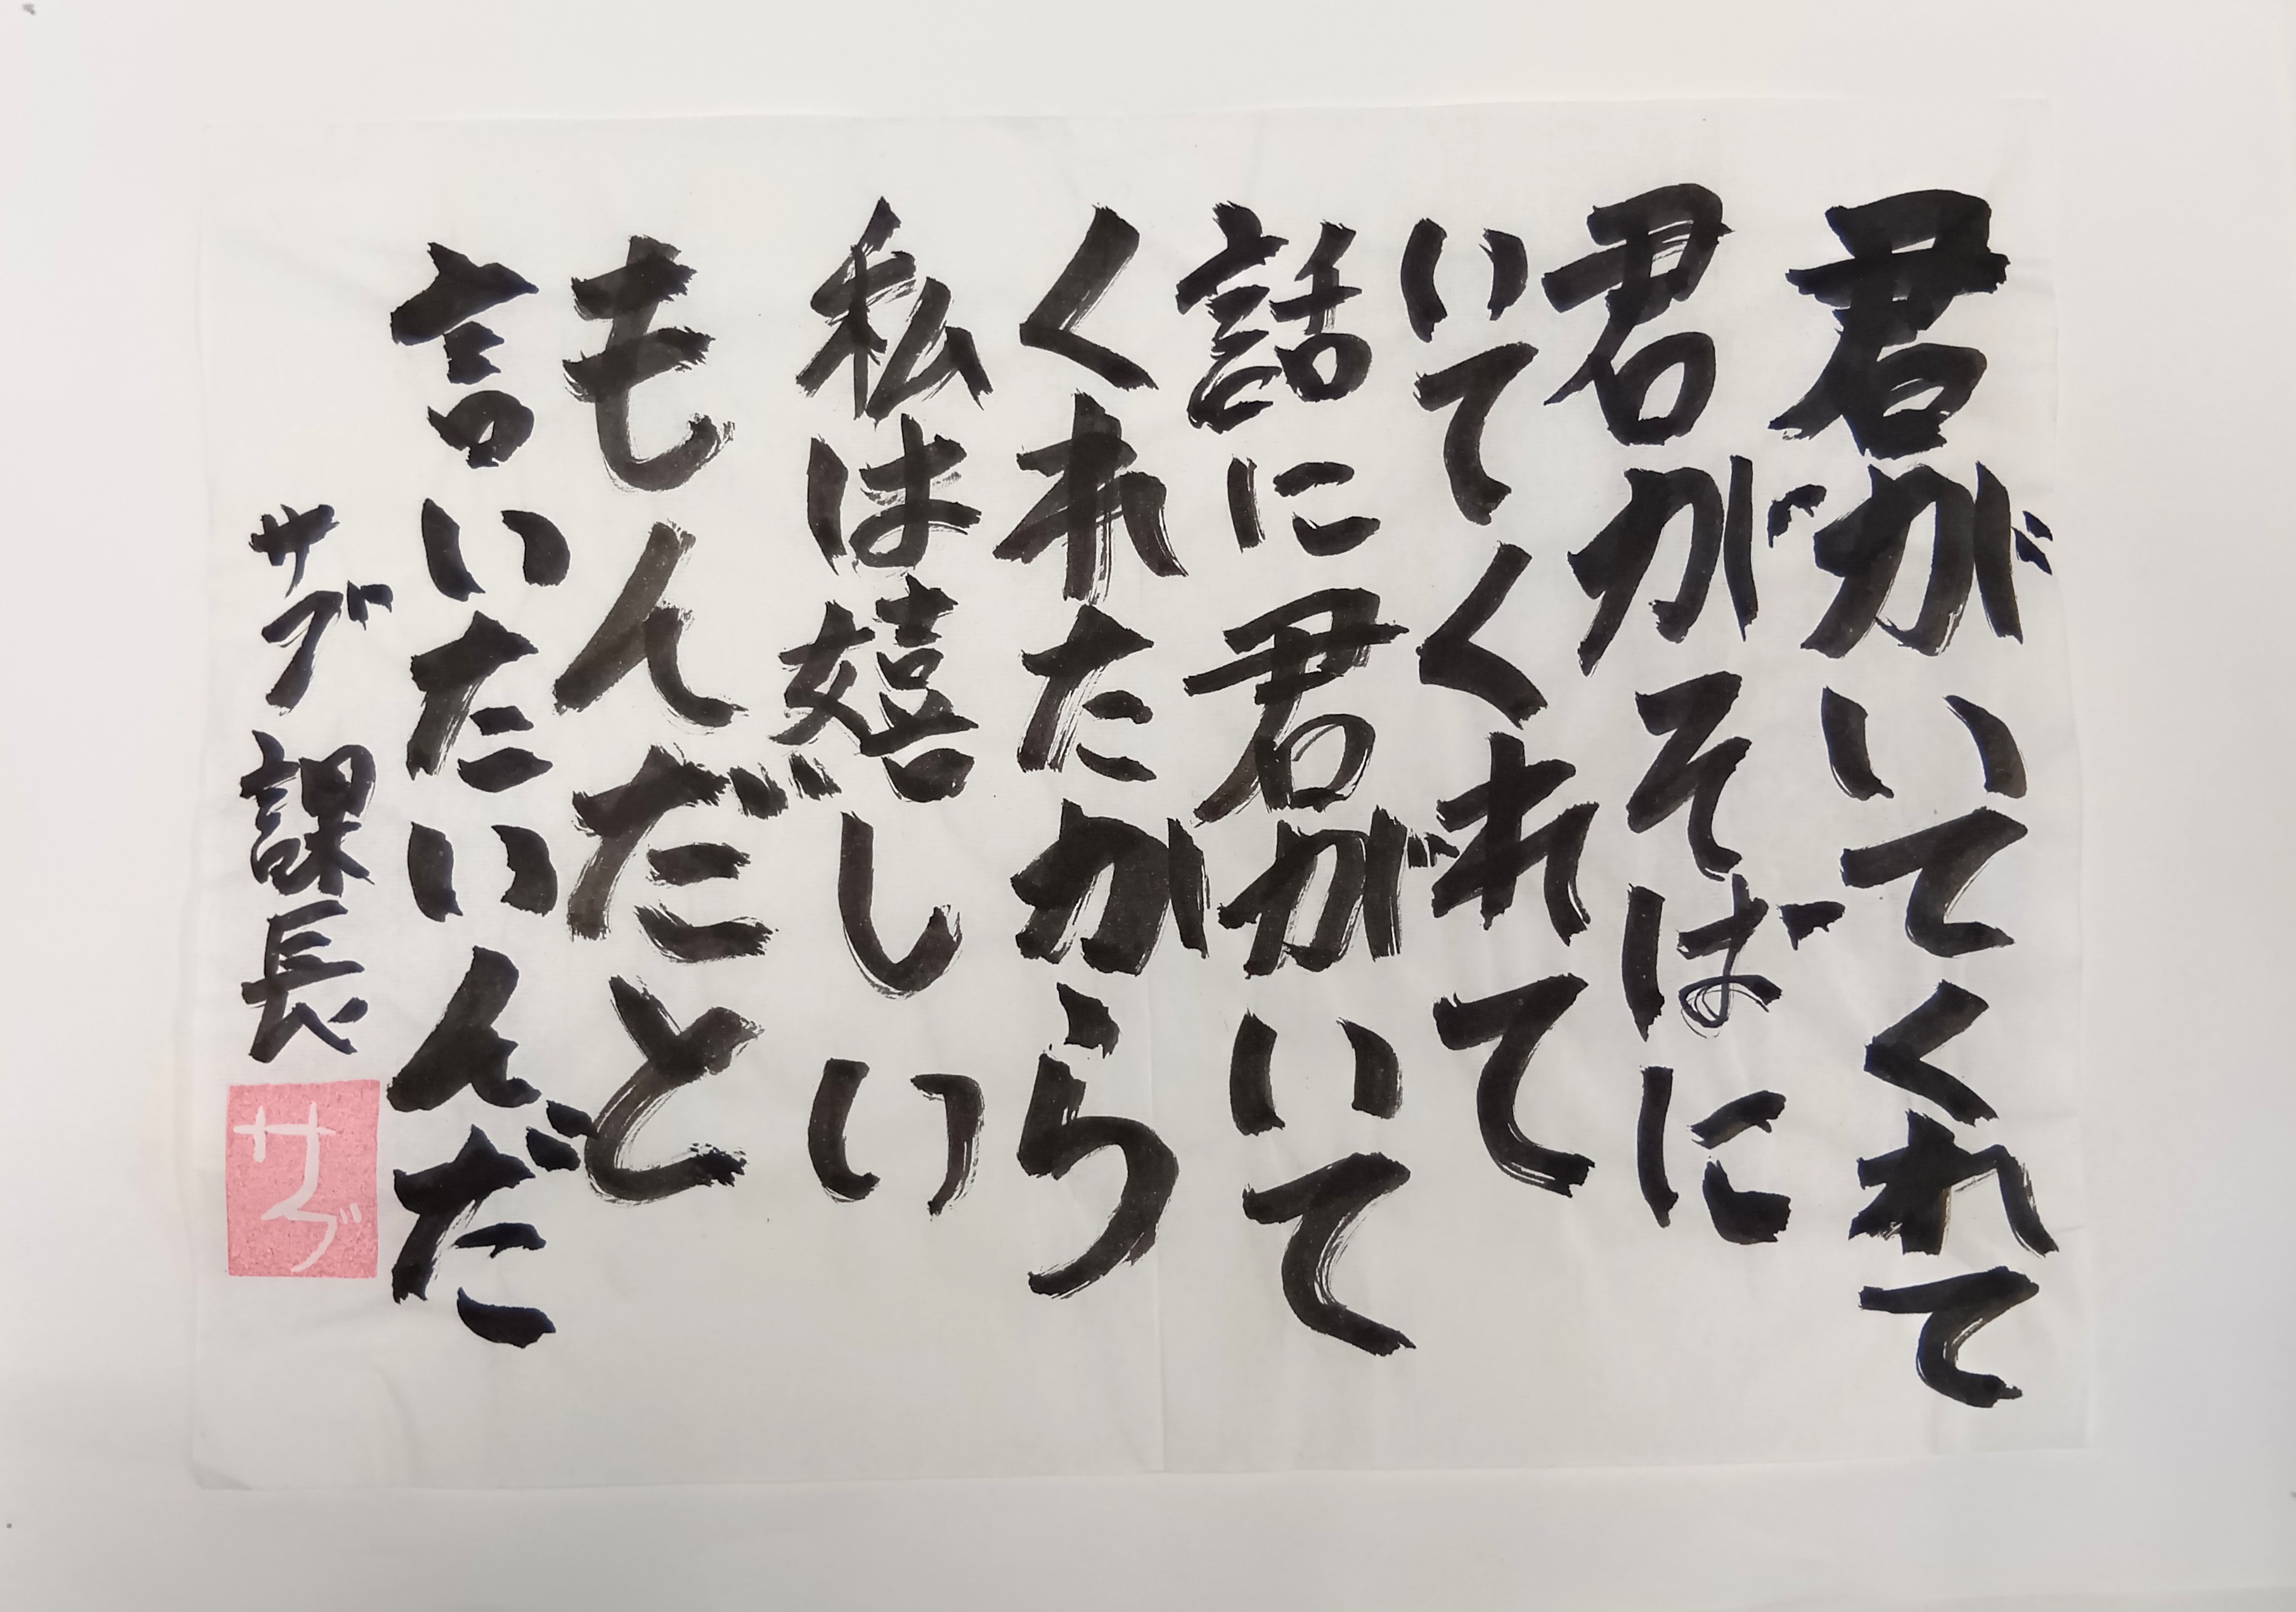 君がいてくれて
君がそばに
いてくれて
話に君がいて
くれたから
私は嬉しい
もんだと
言いたいんだ
サブ課長
サブ